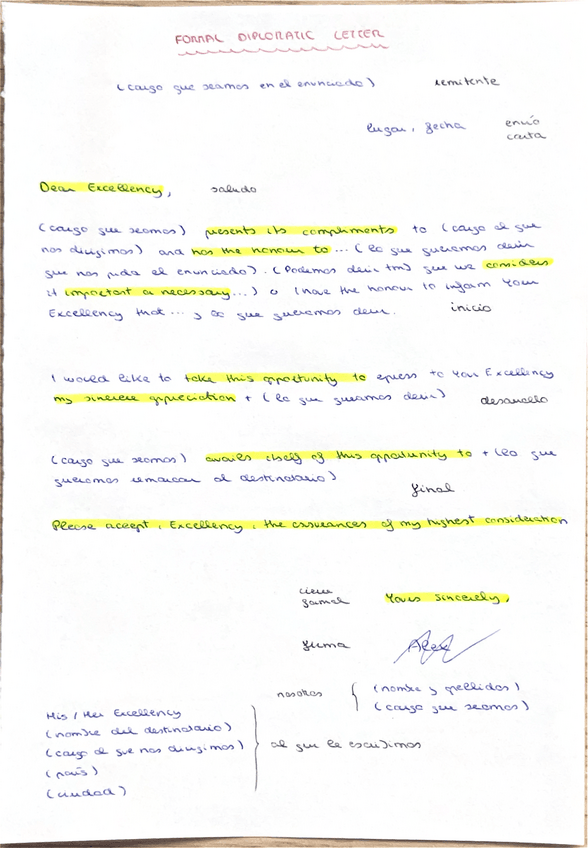 FORMAL DIPLOMATIC LETTER
(cargo que seamos en el enunciado) remitente
lugar, fecha envío
carta
Dear Excellency, saludo
(cargo que seamos) presents its compliments to (cargo al que
nos dirigimos) and has the honour to... (lo que queramos decir
que nos pida el enunciado). (Podemos decir tmb que we considers
it important or necessary...) o I have the honour to inform Your
Excellency that... y lo que queramos decir. inicio
I would like to take this opportunity to express to Your Excellency
my sincere appreciation + (lo que queramos decir) desarrollo
(cargo que seamos) avails itself of this opportunity to + (lo que
queramos remarcar al destinatario)
final
Please accept, Excellency, the assurances of my highest consideration
cierre
formal Yours sincerely,
firma
nosotros (nombre y apellidos)
(cargo que seamos)
His / Her Excellency
(nombre del destinatario)
(cargo al que nos dirigimos) al que le escribimos
(país)
(ciudad)